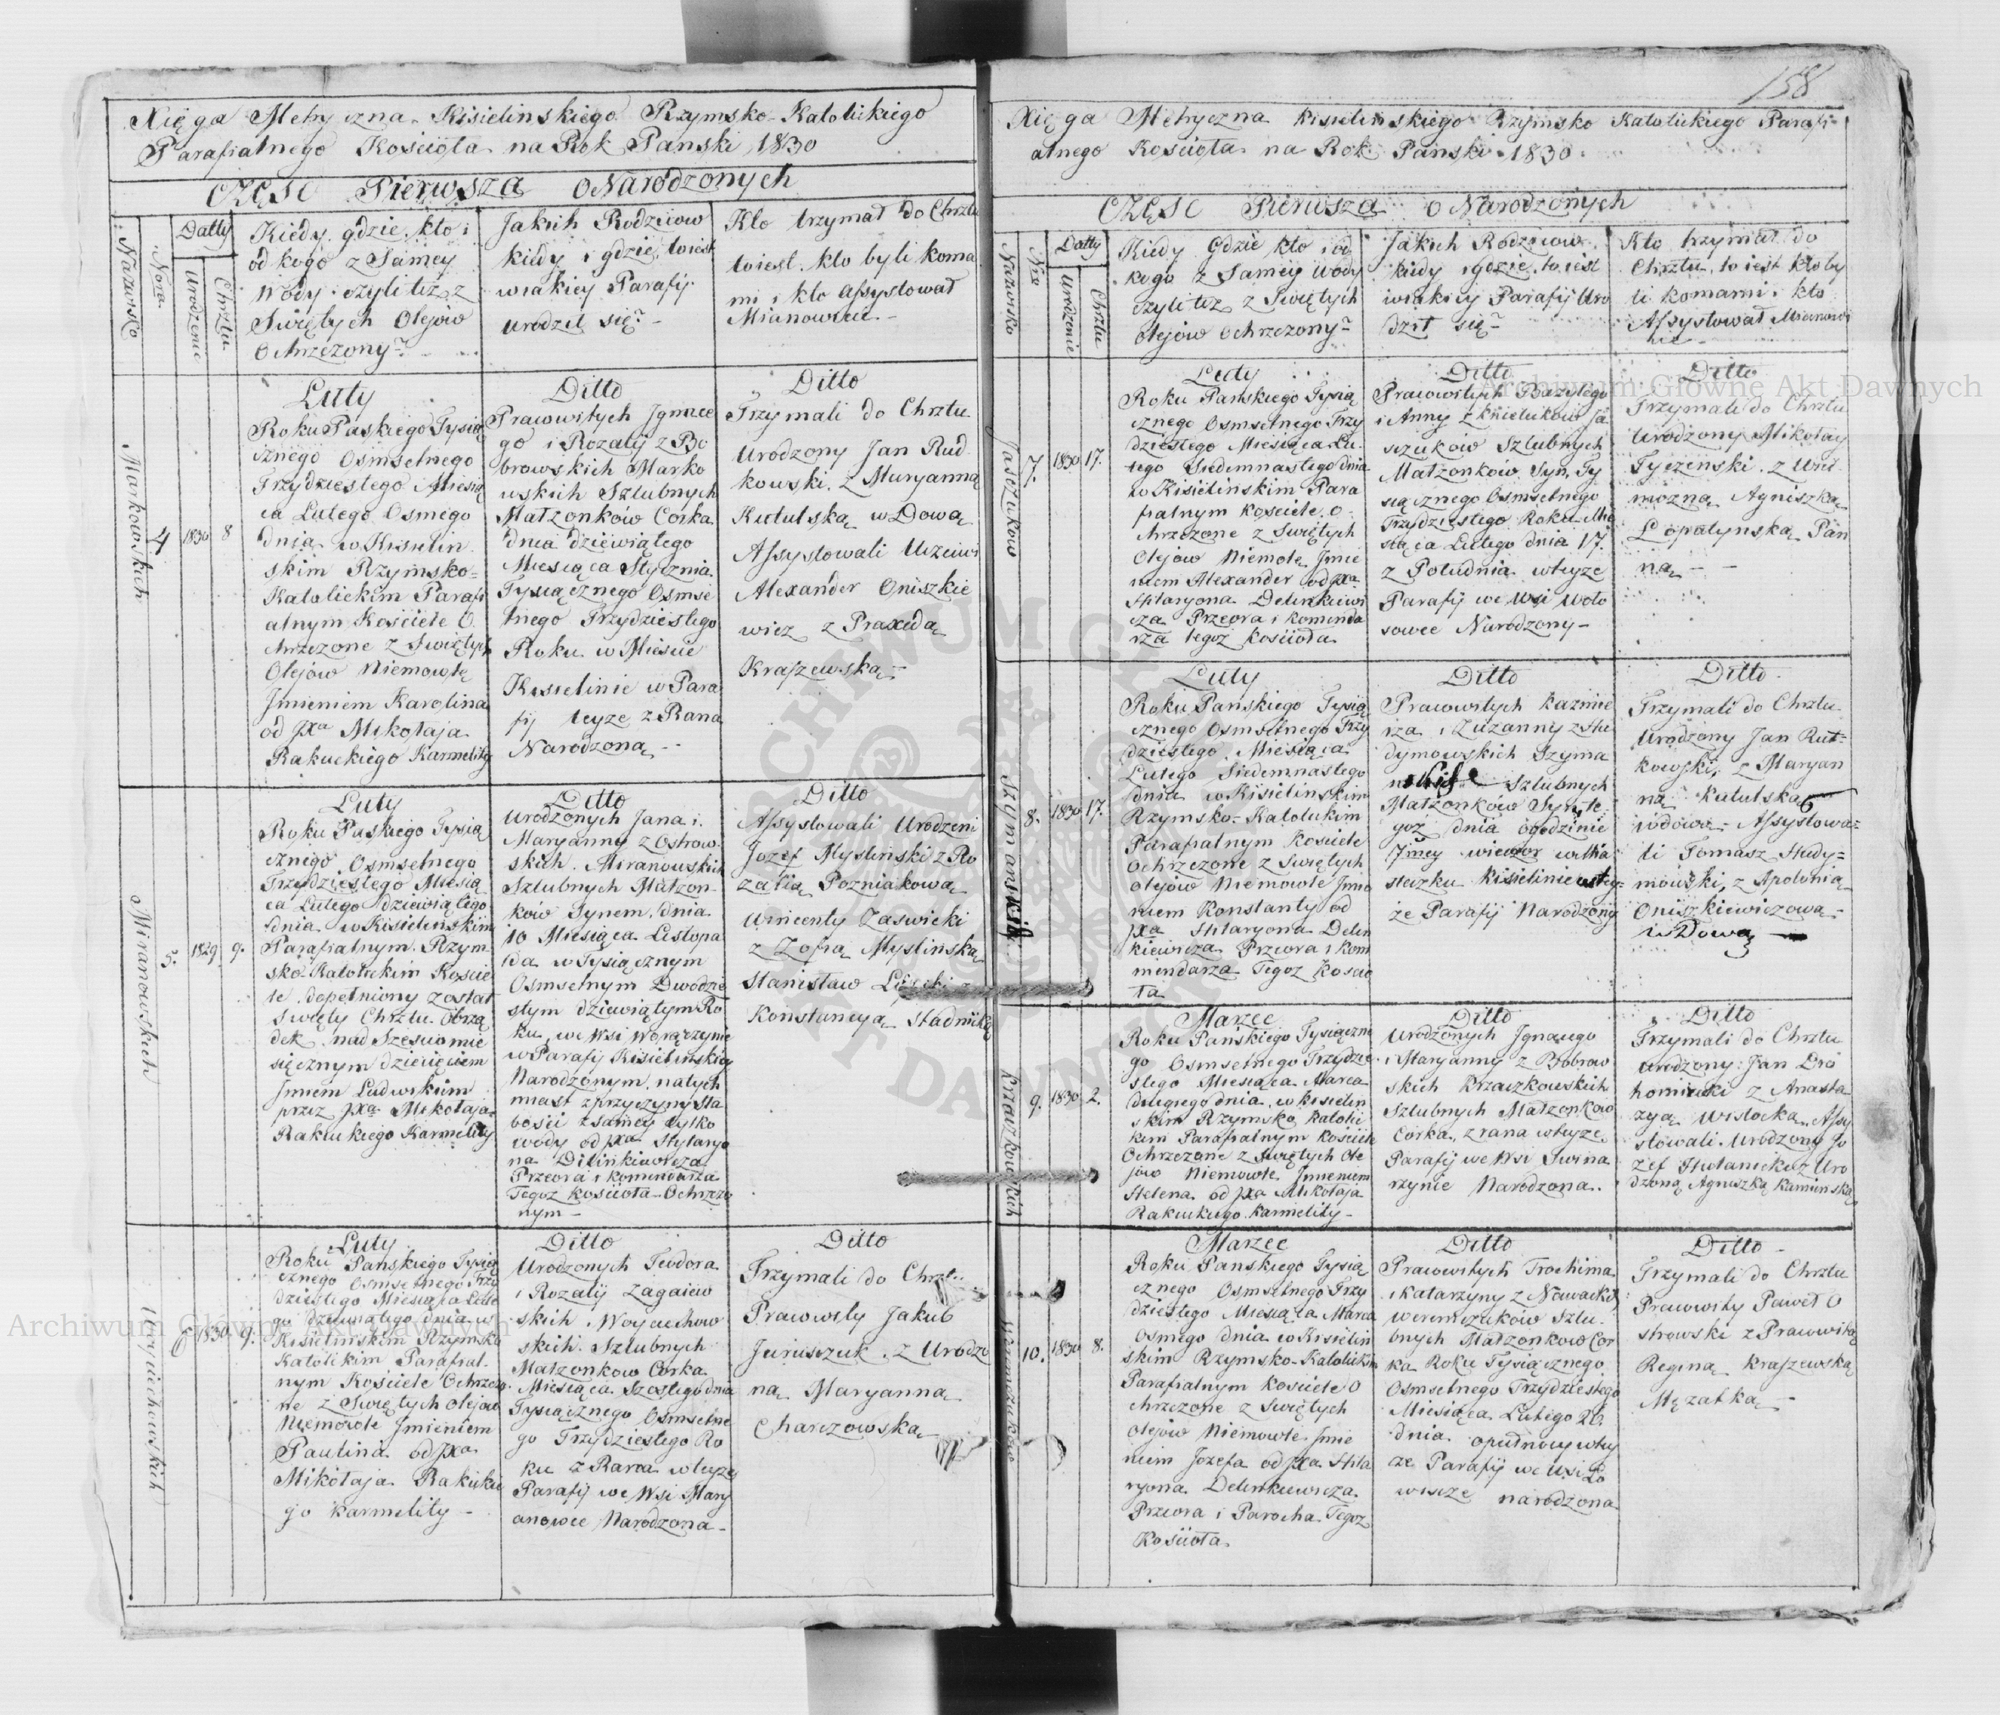 158
Xięga Metryczna Kisielinskiego Rzymsko-Katolickiego
Parafialnego Kościoła na Rok Panski 1830
CZĘSC Pierwsza o Narodzonych
Nazwisko
Nora
Datty
Urodzenie
Chrztu
Kiedy gdzie, kto i
od kogo z Samey
Wody czyli też z
Swiętych Olejow
Ochrzczony?
Jakich Rodziców
kiedy i gdzie, to iest
w iakiey Parafij
urodził się?
Kto trzymał do Chrztu
to iest kto byli kuma
mi i kto Assystował
Mianowicie
Markowskich
4
1830
8
Luty
Roku Paskiego Tysią
cznego Osmsetnego
Trzydziestego Miesią
ca Lutego Osmego
dnia w Kisielin
skim Rzymsko=
Katolickim Parafi
alnym Kościele O
chrzczone z Swiętych
Olejow Niemowlę
Jmieniem Karolina
od Jxa Mikołaja
Rakuckiego Karmelity
Ditto
Prawowitych Jgnace
go i Rozalij z Bo
browskich Marko
wskich Szlubnych
Małżonków Corka
dnia dziewiątego
Miesiąca Stycznia
Tysiącznego Osmse
tnego Trzydziestego
Roku w Miescie
Kisielinie w Para
fij teyze z Rana
Narodzona --
Ditto
Trzymali do Chrztu
Urodzony Jan Rud
kowski z Maryanną
Kutulską w Dową
Assystowali Uczciwi
Alexander Oniszkie
wicz z Praxedą
Kraszewską -
Miranowskich
5.
1829
9.
Luty
Roku Paskiego Tysią
cznego Osmsetnego
Trzydziestego Miesią
ca Lutego dziewiątego
dnia w Kisielinskim
Parafialnym Rzym
sko Katolickim Koscie
le dopełniony został
Swięty Chrztu Obrzą
dek nad Szescio mie
sięcznym dziecięciem
Jmiem Ludwikiem
przez Jxa Mikołaja
Rakuckiego Karmelity
Ditto
Urodzonych Jana i
Maryanny z Ostrow
skich Miranowskich
Szlubnych Małżon-
ków Synem dnia
10 Miesiąca Listopa
da w Tysiącznym
Osmsetnym Dwudzie
stym dziewiątym Ro
ku, we Wsi Woronczynie
w Parafij Kisielinskiey
Narodzonym, natych
miast z przyczyny Sła
bości z samey tylko
wody od Jxa Hylaryo
na Delinkiewicza
Przeora i komendarza
Tegoz Kościoła Ochrzczo
nym -
Ditto
Assystowali Urodzeni
Jozef Mysliński z Ro
zalią Pozniakową
Wincenty Zaswicki
z Zofią Myslińską
Stanisław
Konstancyą Stadnicką
Woyciechowskich
6
1830
9.
Luty
Roku Panskiego Tysią
cznego Osmsetnego Trzy
dziestego Miesiąca Lute
go dziewiątego dnia w
Kisielinskim Rzymsko
Katolickim Parafial-
nym Kościele Ochrzczo
ne z Swiętych olejow
Niemowle Jmieniem
Paulina od Jxa
Mikołaja Rakuckie
go karmelity -
Ditto
Urodzonych Teodora
i Rozalij Zagaiew
skich Woyciechow
skich Szlubnych
Małzonkow Corka
Miesiąca Szostego dnia
Tysiącznego Osmsetne
go Trzydziestego Ro
ku z Rana w teyze
Parafij we Wsi Mary
anowce Narodzona -
Ditto
Trzymali do Chrztu
Prawowity Jakub
Juruszczuk z Urodzo
ną Maryanną
Charczowską
Xięga Metryczna Kisielinskiego Rzymsko Katolickiego Parafi=
alnego Kościoła na Rok Panski 1830
CZĘSC Pierwsza o Narodzonych
Nazwisko
Nro
Datty
Urodzenie
Chrztu
Kiedy Gdzie kto i od
kogo z Samey Wody
czyli też z Swiętych
Olejów Ochrzczony?
Jakich Rodziców
kiedy i gdzie, to iest
w iakiey Parafij Uro
dził się?
Kto trzymał do
Chrztu, to iest kto by
li kumami i kto
Assystował Mianowi
cie
Jaszczuków
7.
1830
17.
Luty
Roku Panskiego Tysią
cznego Osmsetnego Trzy
dziestego Miesiąca Lu
tego Siedemnastego dnia
w Kisielińskim Para
fialnym kościele o
chrzczone z Swiętych
Olejow Niemole Jmie
niem Alexander od Jxa
Hilaryona Delinkiewi
cza Przeora i komenda
rza tegoz Kościoła
Ditto
Prawowitych Bazylego
i Anny z Knieiukow Ja
szczuków Szlubnych
Małżonków Syn, Ty
siącznego Osmsetnego
Trzydziestego Roku Mie
siąca Lutego dnia 17.
z Południa w teyze
Parafij we Wsi Woło
sowce Narodzony -
Ditto
Trzymali do Chrztu
Urodzony Mikołay
Tyczenski z Wiel
mozną Agniszką
Łopatynską Pan
ną --
Szymanskich
8.
1830
17.
Luty
Roku Panskiego Tysią
cznego Osmsetnego Trzy
dziestego Miesiąca
Lutego Siedemnastego
dnia w Kisielinskim
Rzymsko-Katolickim
Parafialnym Kosciele
Ochrzczone z Swiętych
olejow Niemowle Jmie
niem Konstanty od
Jxa Hilaryona Delin
kiewicza Przeora i kom
mendarza Tegoz Koscio
ła
Ditto
Prawowitych Kaźmie
rza i Zuzanny z Stu
dymowskich Szyma
nskich Szlubnych
Małżonków Syn, te
goż dnia o godzinie
7mey wieczor w Mia
steczku Kisielinie w tey
że Parafij Narodzony
Ditto
Trzymali do Chrztu
Urodzony Jan Rut=
kowski, z Maryan
ną Katulską
wdową, Assystowa=
li Tomasz Study=
mowski, z Apolonią
Oniszkiewiczową
w Dową -
Krzaczkowskich
9.
1830
2.
Marzec
Roku Panskiego Tysiączne
go Osmsetnego Trzydzie
stego Miesiąca Marca
drugiego dnia w kisielin
skim Rzymsko Katolic
kim Parafialnym kościele
Ochrzczone z Swiętych Ole
jow Niemowle Jmieniem
Helena od Jxa Mikołaja
Rakuckiego karmelity -
Ditto
Urodzonych Jgnacego
i Maryanny z Bobrow
skich Krzaczkowskich
Szlubnych Małżonkow
Corka, z rana w teyze
Parafij we Wsi Swina
rzynie Narodzona.
Ditto
Trzymali do Chrztu
urodzony Jan Dro
homirecki z Anasta
zyą Wislocką, Assy
stowali Urodzony Jo
zef Hulanicki z Uro
dzoną Agniszką Kaminską
Weremczuków
10.
1830
8.
Marzec
Roku Panskiego Tysią
cznego Osmsetnego Trzy
dziestego Miesiąca Marca
Osmego dnia w Kisielin
skim Rzymsko-Katolickim
Parafialnym kosciele O
chrzczone z Swiętych
Olejów Niemowle Jmie
niem Jozefa od Jxa Hila
ryona Delinkiewicza
Przeora i Parocha Tegoz
Kościoła.
Ditto
Prawowitych Trochima
i Katarzyny z Nowackich
Weremczuków Szlu-
bnych Małzonkow Cor
ka Roku Tysiącznego
Osmsetnego Trzydziestego
Miesiąca Lutego 26
dnia o północy w tey
ze Parafij we wsi Ło
wiszcze narodzona
Ditto -
Trzymali do Chrztu
Prawowity Paweł O
strowski z Prawowitą
Reginą Kraszewską
Męzatką -
Archiwum Główne Akt Dawnych
Archiwum Główne Akt Dawnych
ARCHIWUM GŁÓWNE AKT DAWNYCH